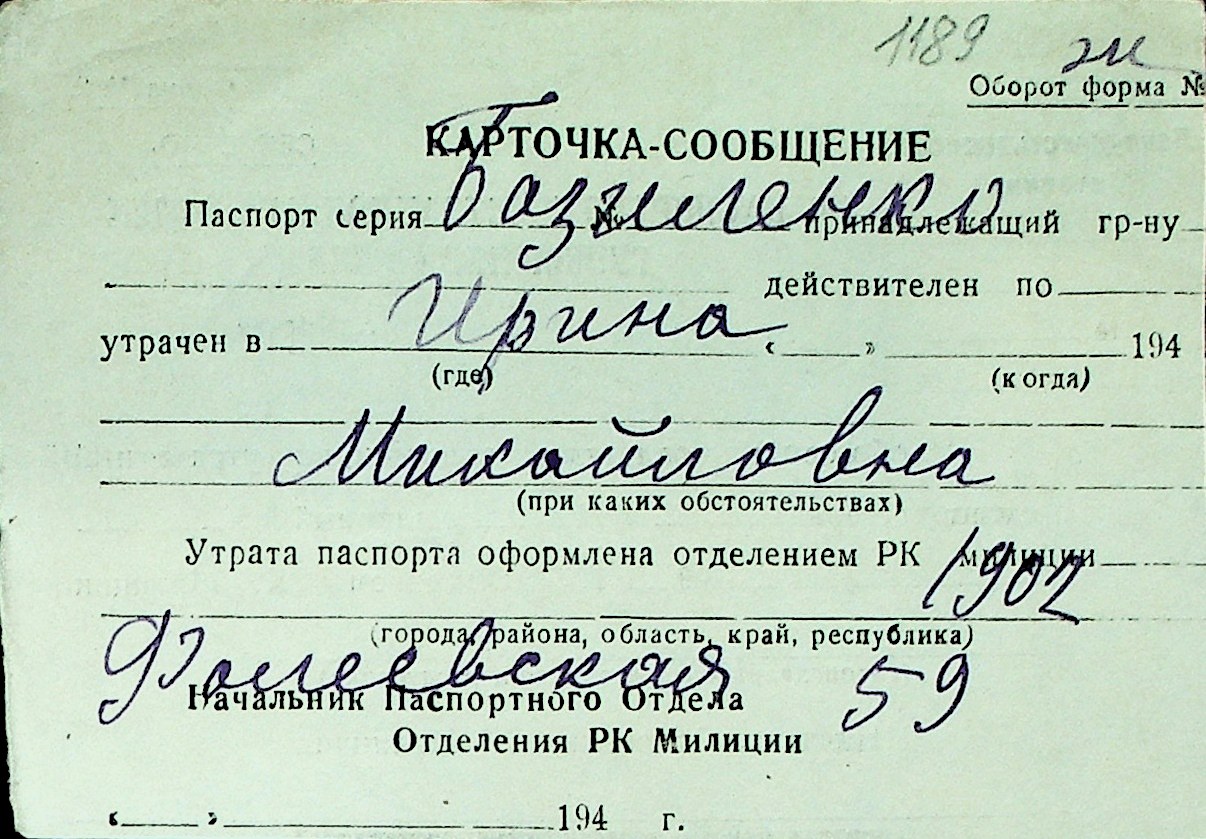 1189 ж
Оборот форма №
КАРТОЧКА-СООБЩЕНИЕ
Базиленко
Паспорт серия № принадлежащий гр-ну
действителен по
Ирина
утрачен в « » 194
(где) (когда)
Михайловна
(при каких обстоятельствах)
Утрата паспорта оформлена отделением РК милиции
1902
(города, района, область, край, республика)
59
Начальник Паспортного Отдела
Отделения РК Милиции
« » 194 г.